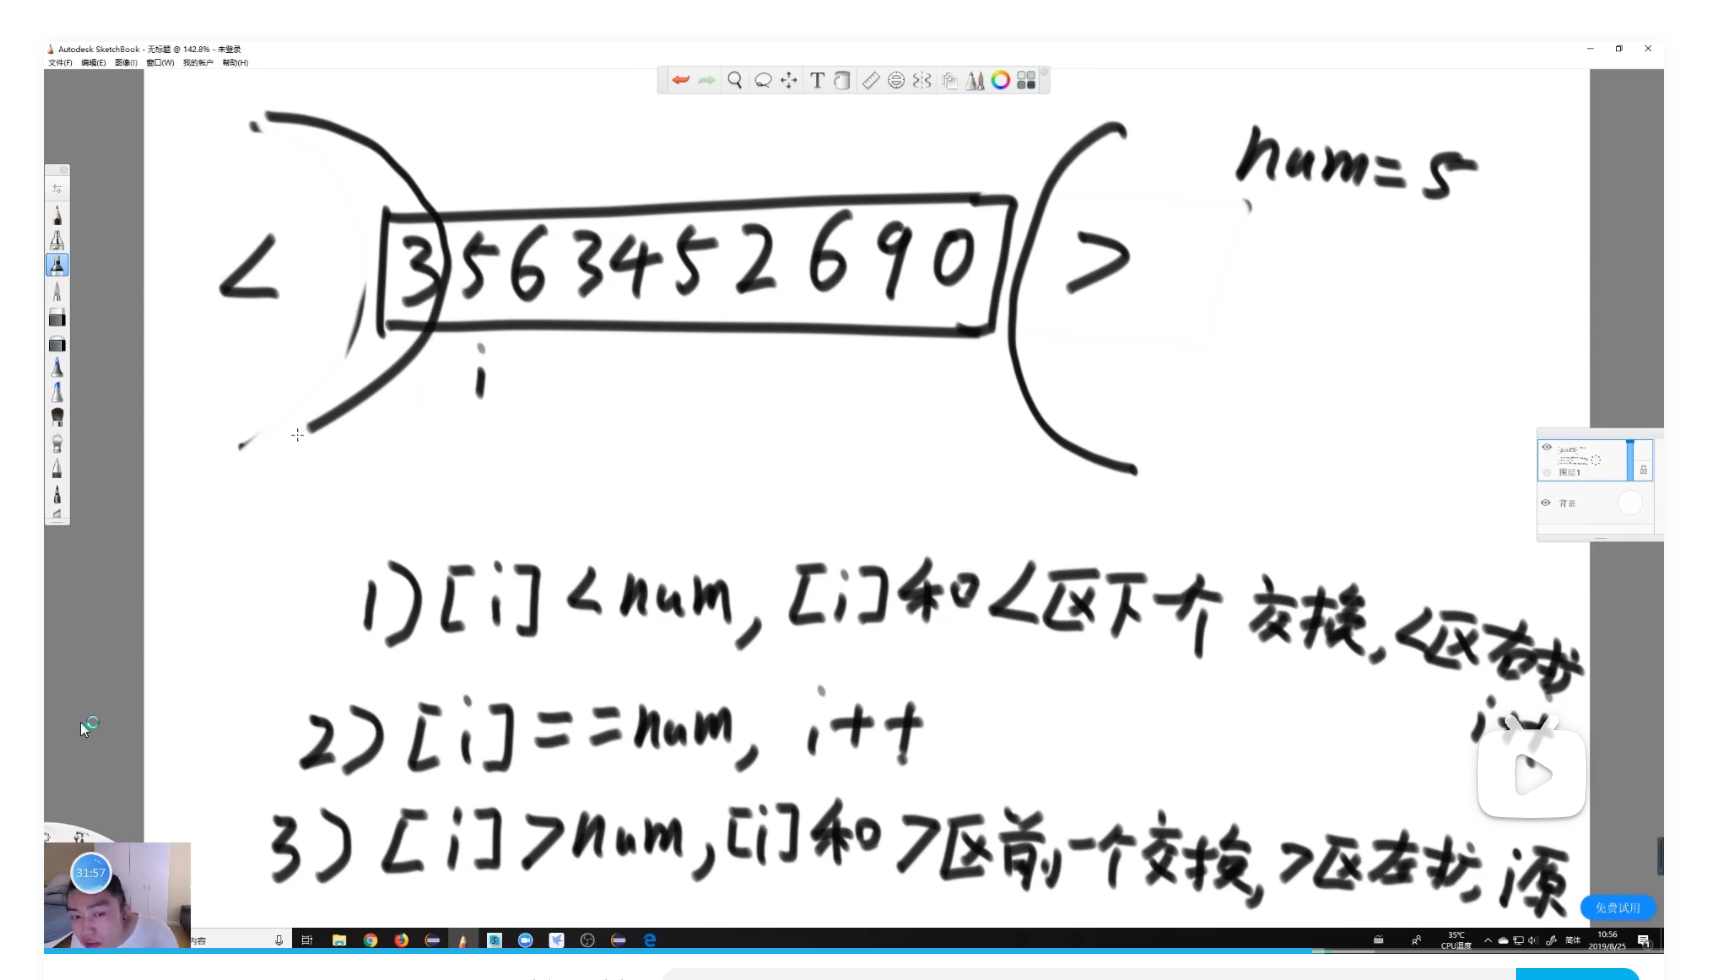 Autodesk SketchBook - 无标题 @ 142.8% - 未登录
文件(F) 编辑(E) 图像(I) 窗口(W) 我的帐户 帮助(H)
num=5
< 3 5 6 3 4 5 2 6 9 0 >
i
图层1
背景
1) [i] < num, [i]和<区下一个 交换, <区右扩
i++
2) [i] == num, i++
3) [i] > num, [i]和>区前一个交换, >区左扩, i原
31:57
免费试用
内容
35℃
CPU温度
简体
10:56
2019/8/25